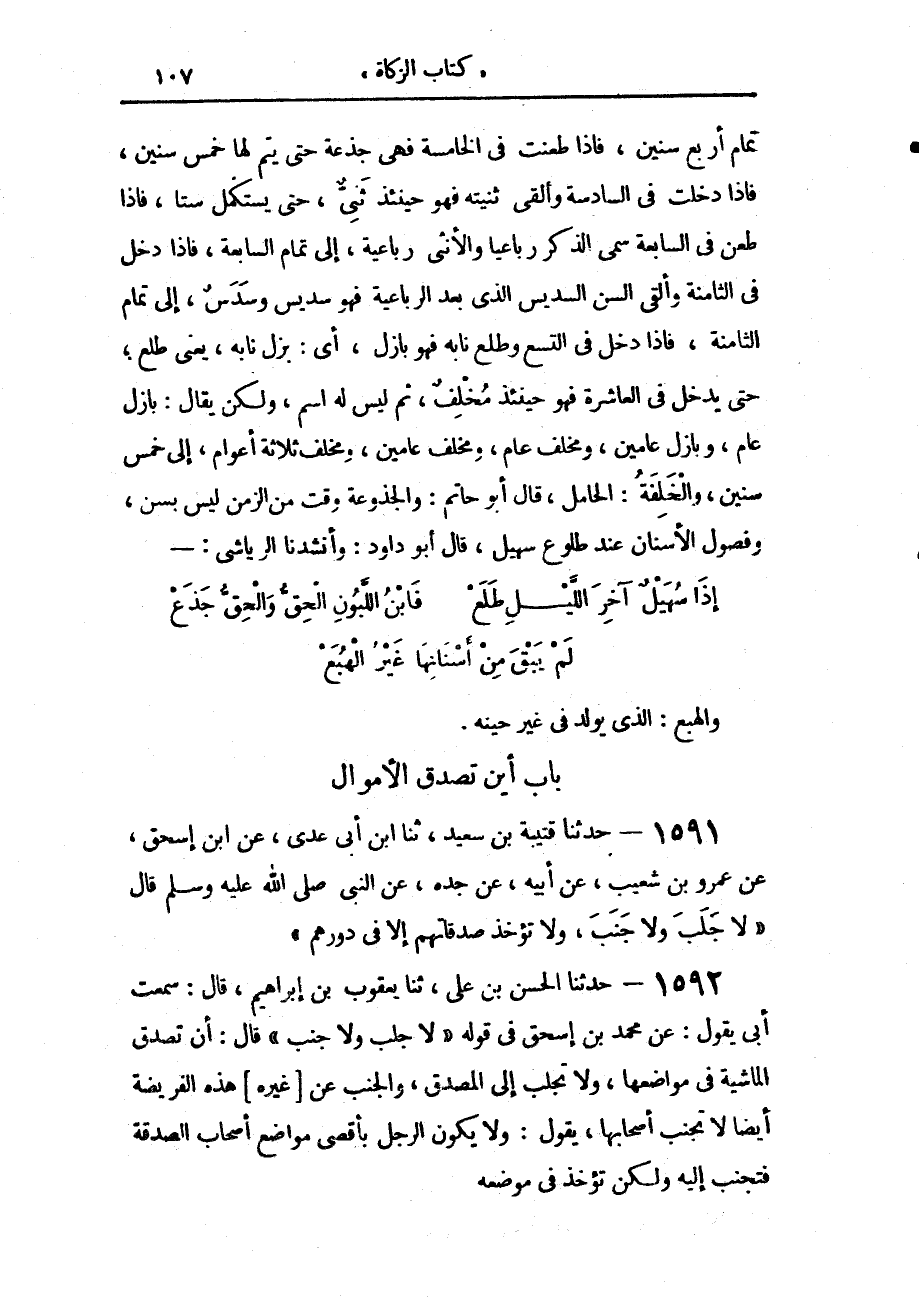 « كتاب الزكاة » ١٠٧
تمام أربع سنين ، فاذا طعنت فى الخامسة فهى جذعة حتى يتم لها خمس سنين ،
فاذا دخلت فى السادسة وألقى ثنيته فهو حينئذ ثَنِىٌّ ، حتى يستكمل ستا ، فاذا
طعن فى السابعة سمى الذكر رباعيا والأنثى رباعية ، إلى تمام السابعة ، فاذا دخل
فى الثامنة وألقى السن السديس الذى بعد الرباعية فهو سديس وسَدَسٌ ، إلى تمام
الثامنة ، فاذا دخل فى التسع وطلع نابه فهو بازل ، أى : بزل نابه ، يعنى طلع ؛
حتى يدخل فى العاشرة فهو حينئذ مُخْلِفٌ ، ثم ليس له اسم ، ولكن يقال : بازل
عام ، وبازل عامين ، ومخلف عام ، ومخلف عامين ، ومخلف ثلاثة أعوام ، إلى خمس
سنين ، والْخَلِفَةُ : الحامل ، قال أبو حاتم : والجذوعة وقت من الزمن ليس بسن ،
وفصول الأسنان عند طلوع سهيل ، قال أبو داود : وأنشدنا الرياشى : —
إذَا سُهَيْلٌ آخِرَ اللَّيْلِ طَلَعْ فَابْنُ اللَّبُونِ الْحِقُّ وَالْحِقُّ جَذَعْ
لَمْ يَبْقَ مِنْ أَسْنَانِهَا غَيْرُ الْهُبَعْ
والهبع : الذى يولد فى غير حينه .
باب أين تصدق الأموال
١٥٩١ — حدثنا قتيبة بن سعيد ، ثنا ابن أبى عدى ، عن ابن إسحق ،
عن عمرو بن شعيب ، عن أبيه ، عن جده ، عن النبى صلى الله عليه وسلم قال
« لا جَلَبَ ولا جَنَبَ ، ولا تؤخذ صدقاتهم إلا فى دورهم »
١٥٩٢ — حدثنا الحسن بن على ، ثنا يعقوب بن إبراهيم ، قال : سمعت
أبى يقول : عن محمد بن إسحق فى قوله « لا جلب ولا جنب » قال : أن تصدق
الماشية فى مواضعها ، ولا تجلب إلى المصدق ، والجنب عن [ غيره ] هذه الفريضة
أيضا لا تجنب أصحابها ، يقول : ولا يكون الرجل بأقصى مواضع أصحاب الصدقة
فتجنب إليه ولكن تؤخذ فى موضعه